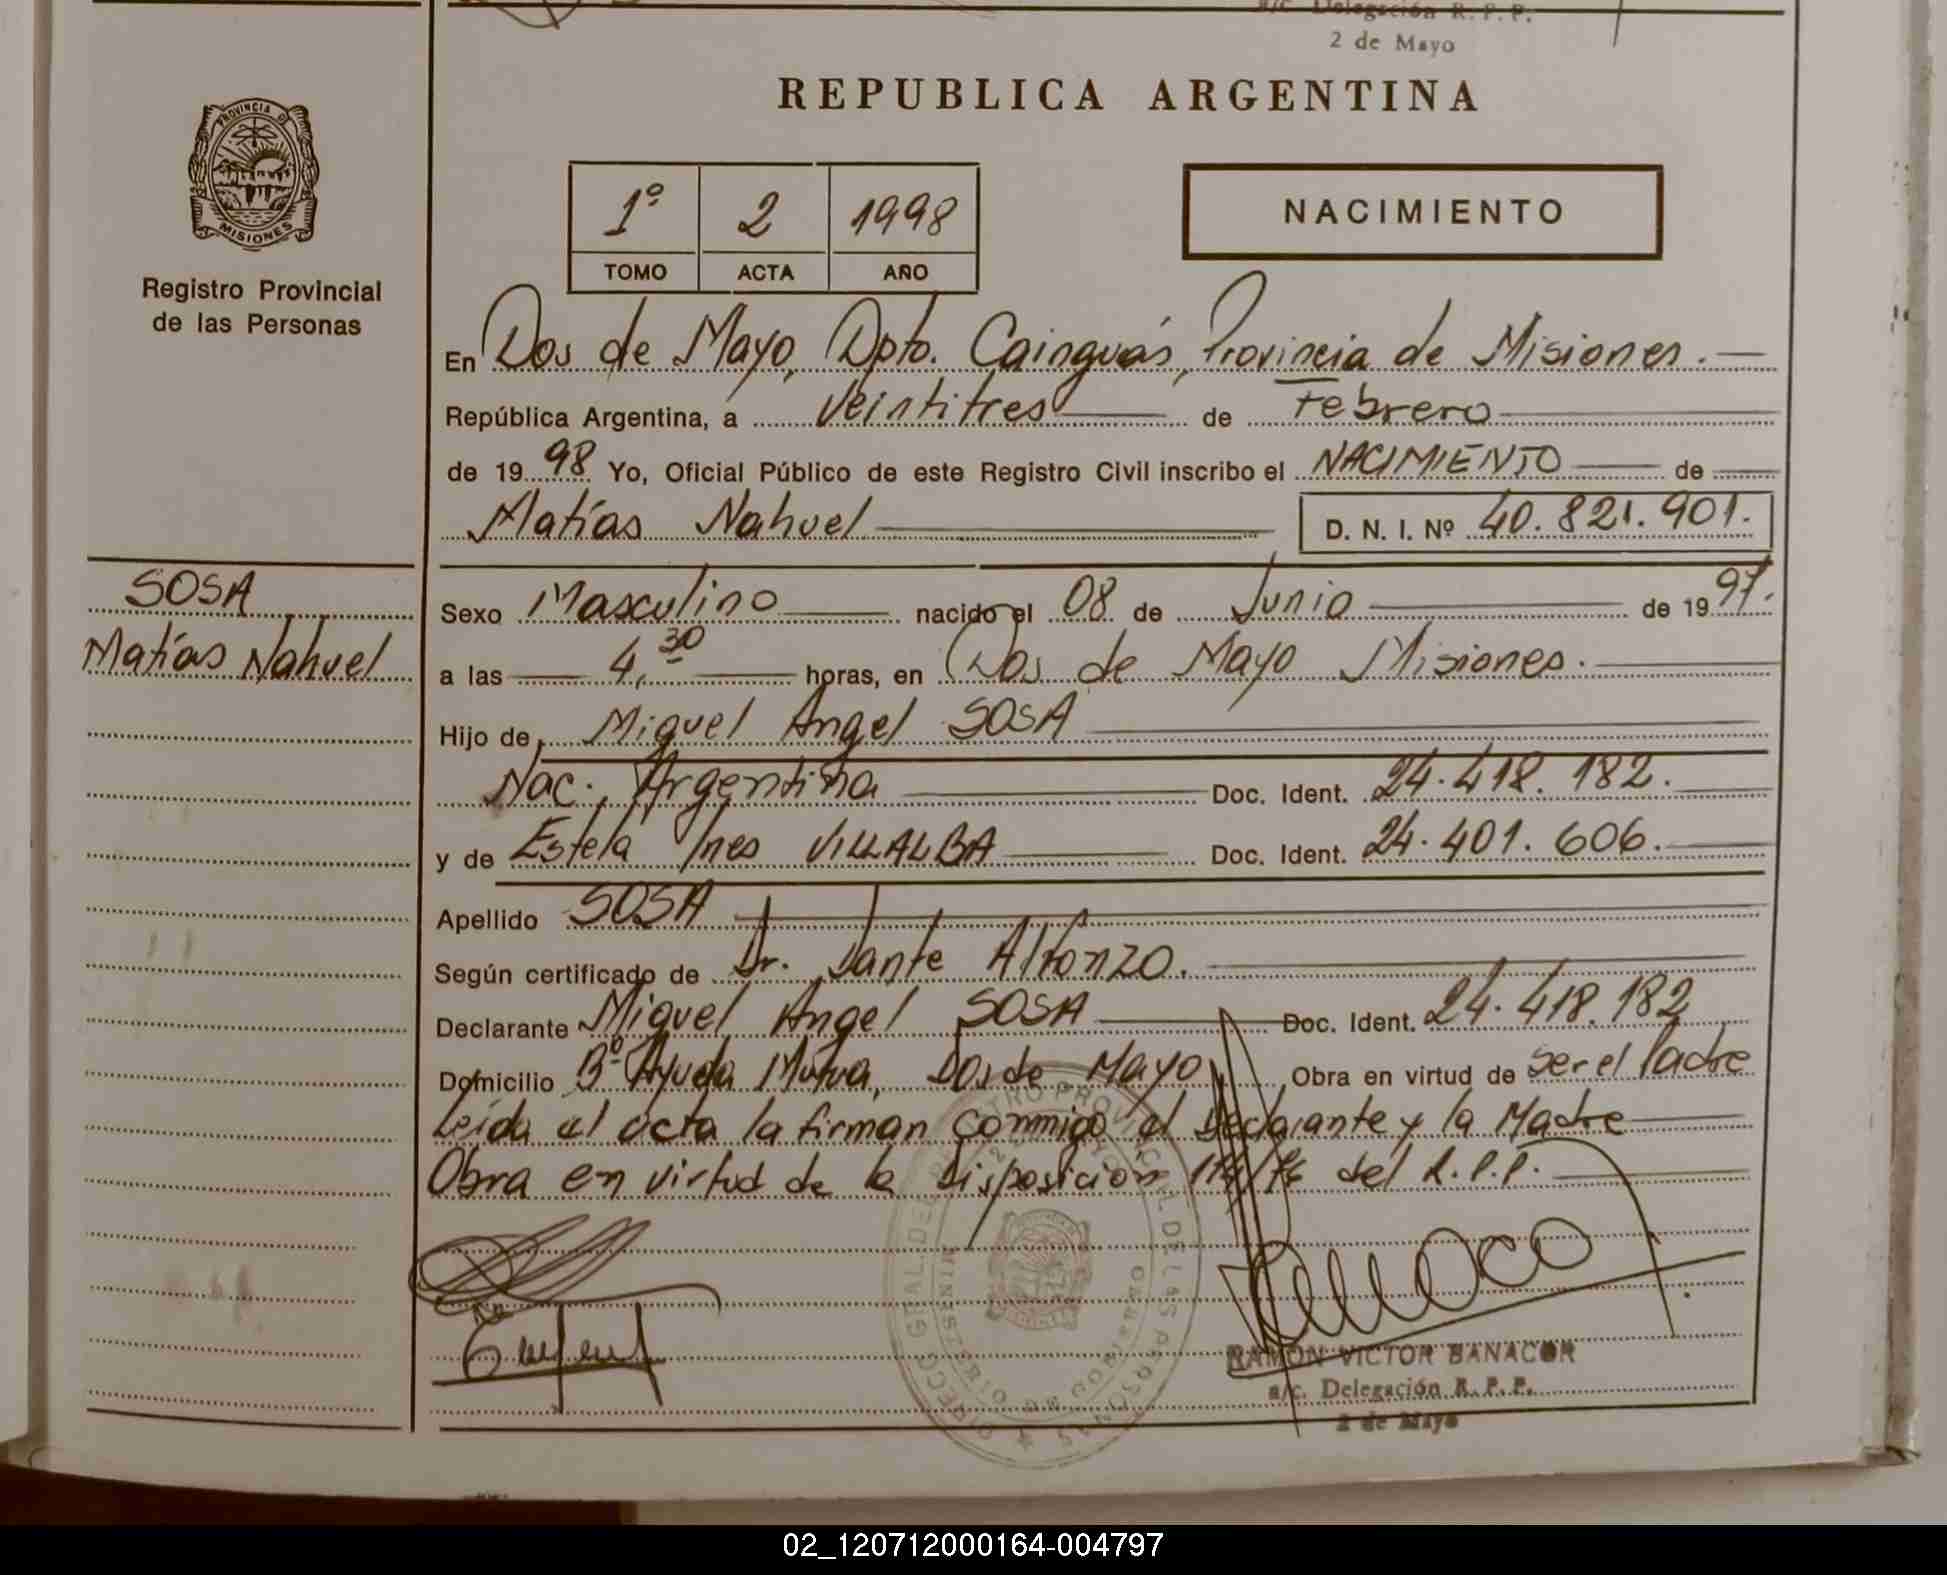 a/c. Delegación R. P. P.
2 de Mayo
REPUBLICA ARGENTINA
PROVINCIA DE
MISIONES
Registro Provincial
de las Personas
1º 2 1998
TOMO ACTA AÑO
NACIMIENTO
En Dos de Mayo, Dpto. Cainguás, Provincia de Misiones.
República Argentina, a veintitres de Febrero
de 1998 Yo, Oficial Público de este Registro Civil inscribo el NACIMIENTO de
Matías Nahuel D. N. I. Nº 40.821.901.
SOSA
Matías Nahuel
Sexo Masculino nacido el 08 de Junio de 1997.
a las 4,30 horas, en Dos de Mayo Misiones.
Hijo de Miguel Angel SOSA
Nac. Argentina Doc. Ident. 24.418.182.
y de Estela Ines VILLALBA Doc. Ident. 24.401.606.
Apellido SOSA
Según certificado de Dr. Dante Alfonzo.
Declarante Miguel Angel SOSA Doc. Ident. 24.418.182
Domicilio Bº Ayuda Mutua, Dos de Mayo, Obra en virtud de ser el Padre
Leída el acta la firman conmigo el Declarante y la Madre
Obra en virtud de la Disposición del R.P.P.
RAMON VICTOR BANACOR
a/c. Delegación R. P. P.
2 de Mayo
02_120712000164-004797